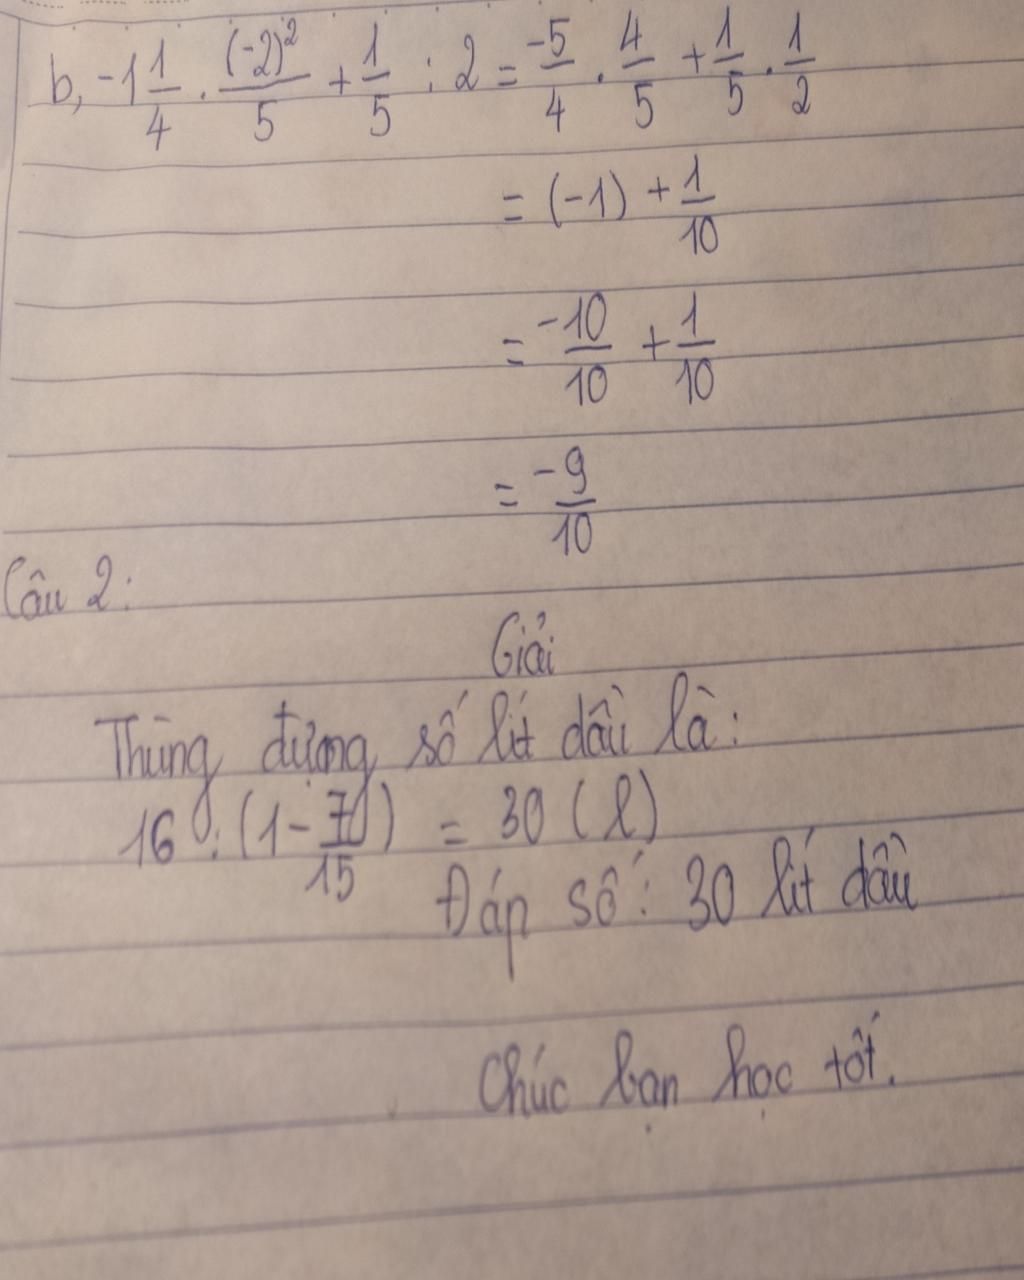 b, -1 1/4 . (-2)²/5 + 1/5 : 2 = -5/4 . 4/5 + 1/5 . 1/2
= (-1) + 1/10
= -10/10 + 1/10
= -9/10
Câu 2:
Giải
Thùng đựng số lít dầu là:
16 : (1 - 7/15) = 30 (l)
Đáp số: 30 lít dầu
Chúc bạn học tốt.